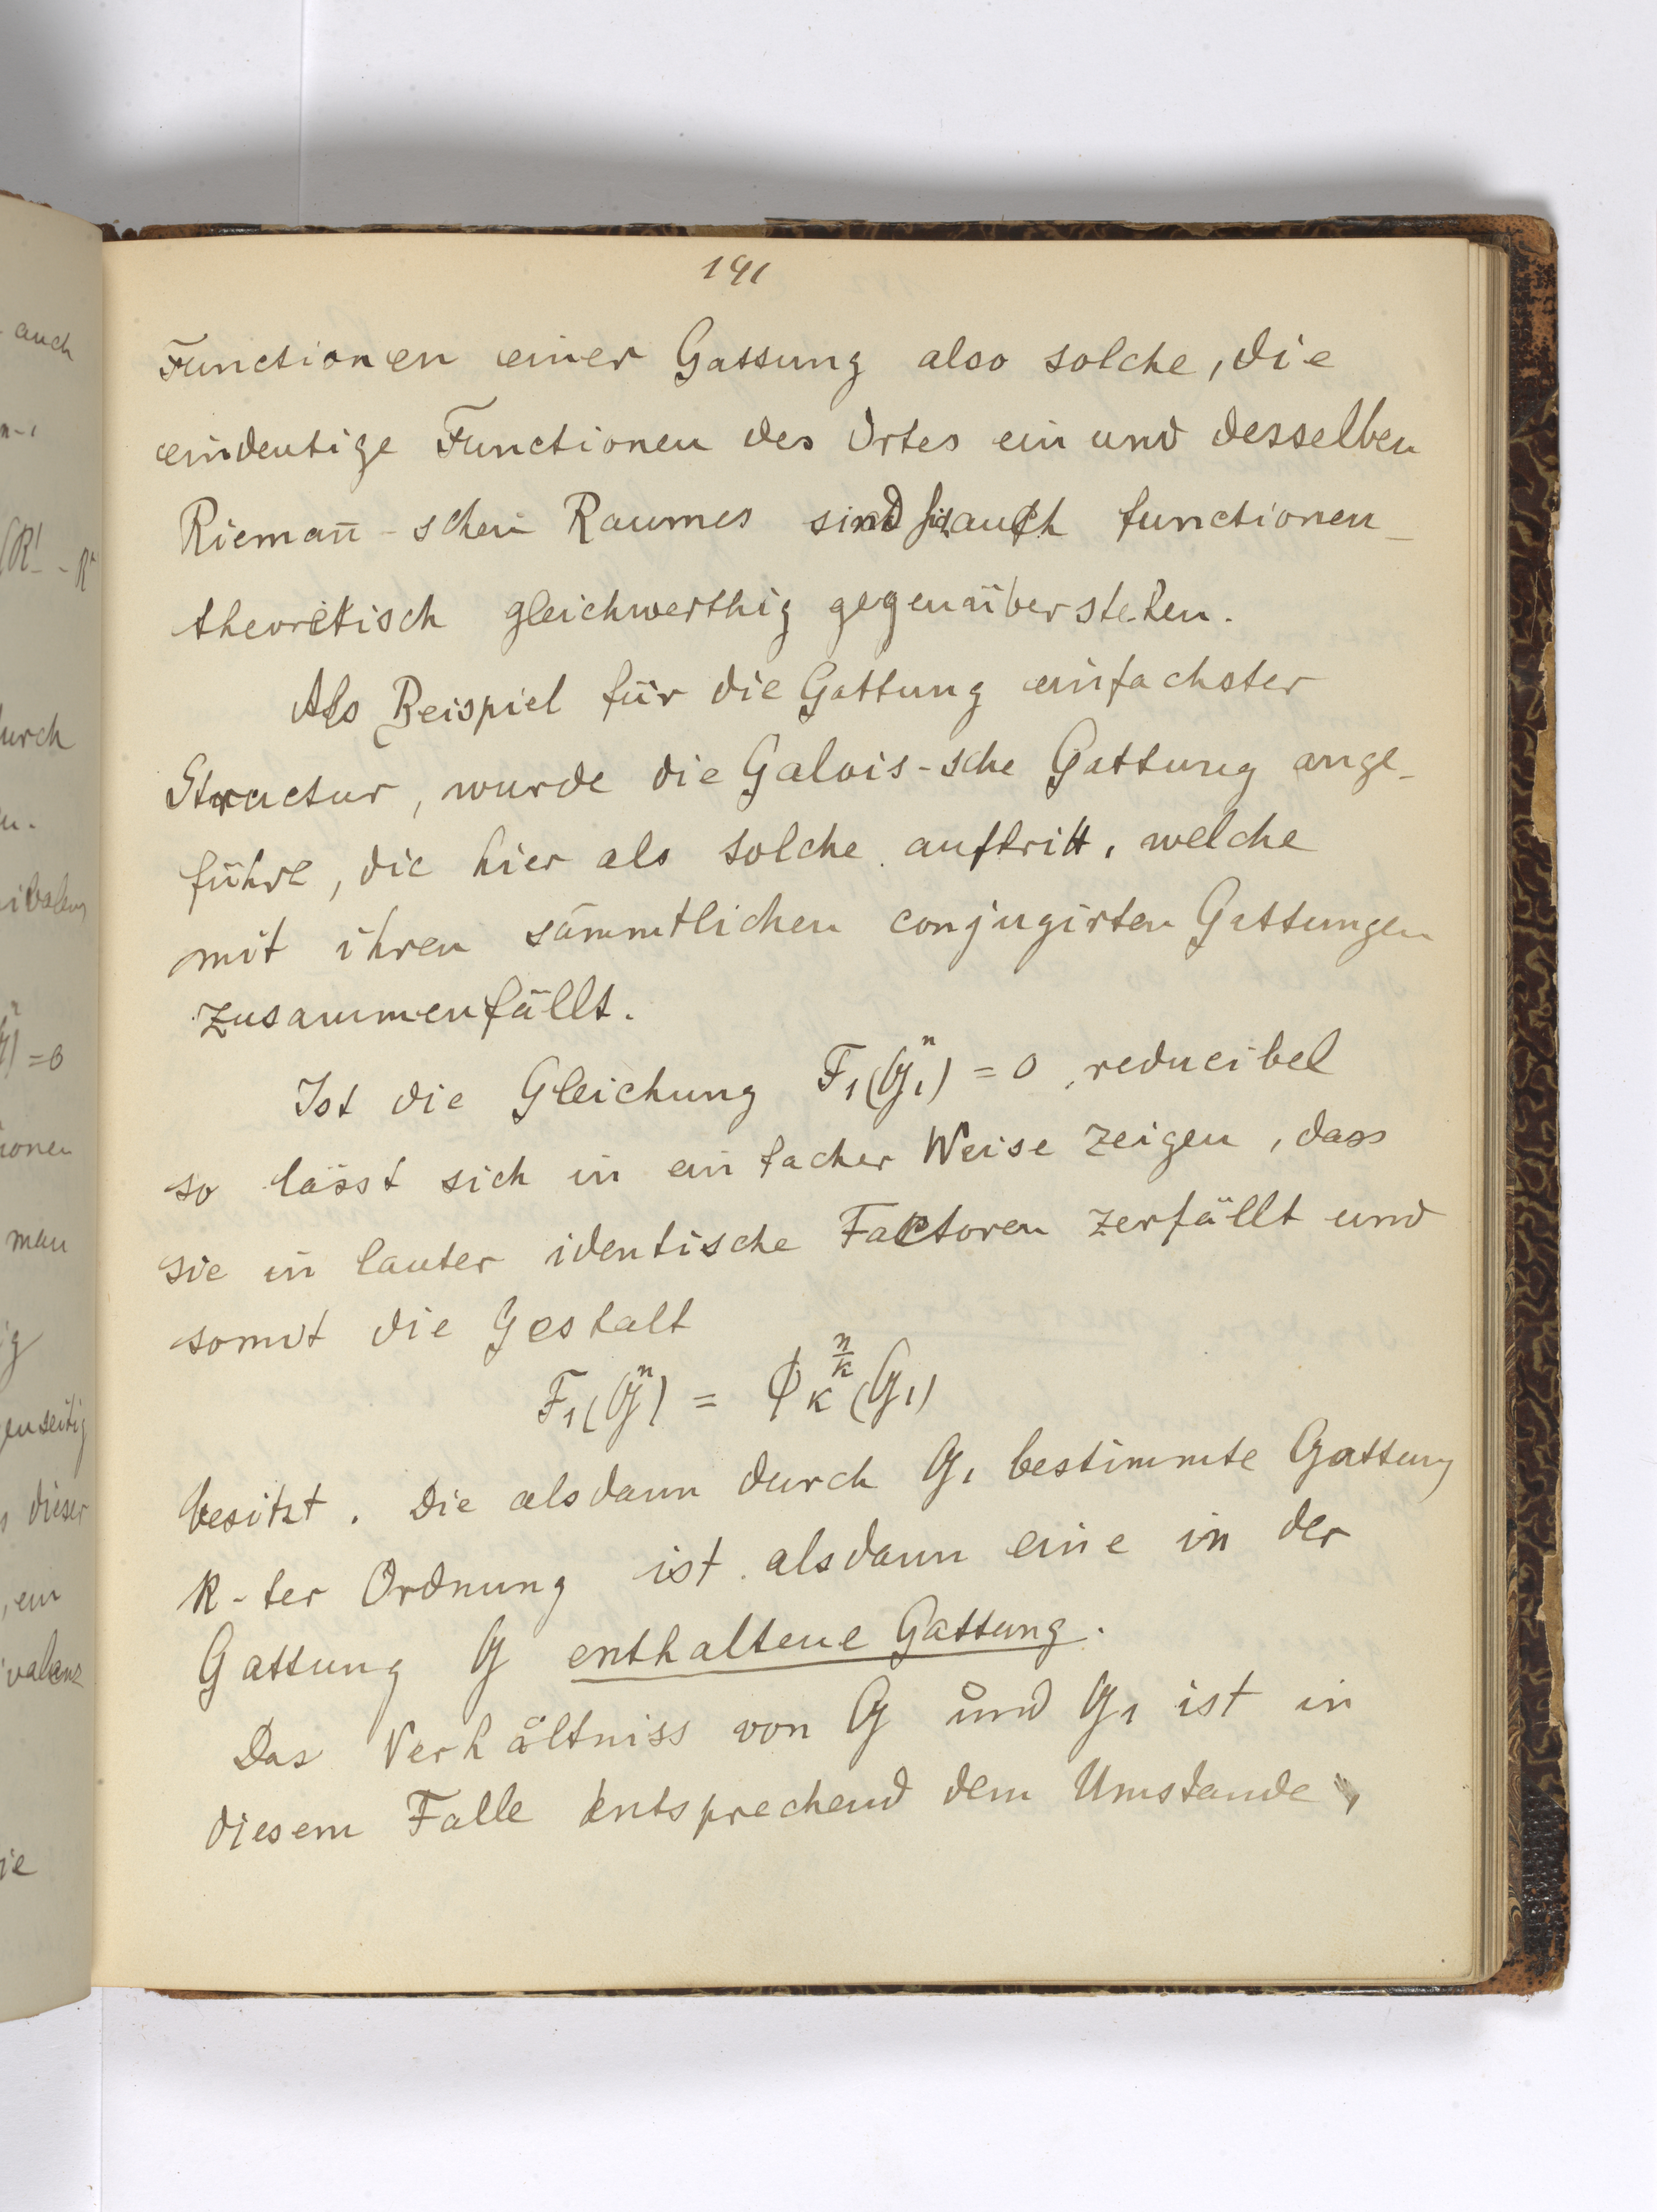 191
Functionen einer Gattung also solche, die
eindeutige Functionen des Ortes ein und desselben
Rieman̄-schen Raumes sind sich auch functionen-
theoretisch gleichwerthig gegenüberstehen.
Als Beispiel für die Gattung einfachster
Structur, wurde die Galois-sche Gattung ange-
führt, die hier als solche auftritt, welche
mit ihren sämmtlichen conjugirten Gattungen
zusammenfällt.
Ist die Gleichung F₁(G₁ⁿ) = 0 reducibel
so lässt sich in einfacher Weise zeigen, dass
sie in lauter identische Factoren zerfällt und
somit die Gestalt
F₁(Gⁿ) = ϕ_K^{n/K}(G₁)
besitzt. Die alsdann durch G₁ bestimmte Gattung
K-ter Ordnung ist alsdann eine in der
Gattung G enthaltene Gattung.
Das Verhältniss von G und G₁ ist in
diesem Falle entsprechend dem Umstande,
auch
n-1
(R' - R
urch
u.
ivalenz
=0
ionen
man
ig
enseitig
dieser
, ein
ivalenz
ie